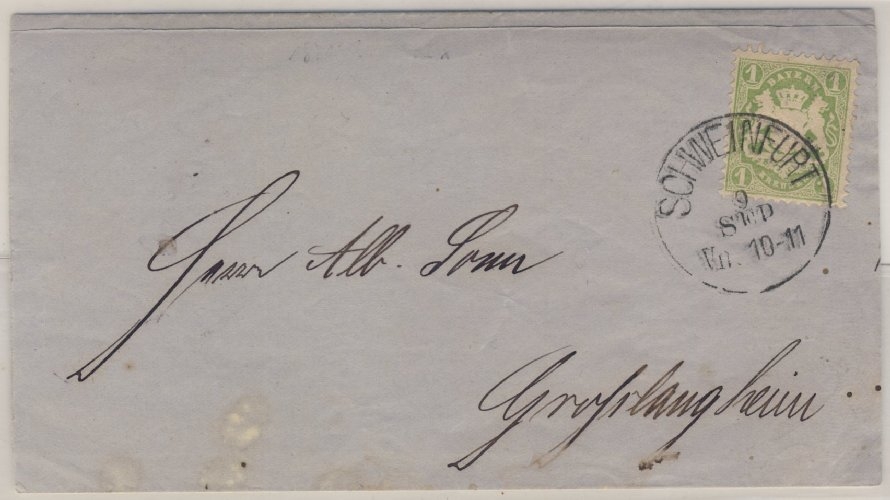 1 BAYERN 1
1
SCHWEINFURT
9
SEP
Vn. 10-11
Herrn Alb.
Großlangheim